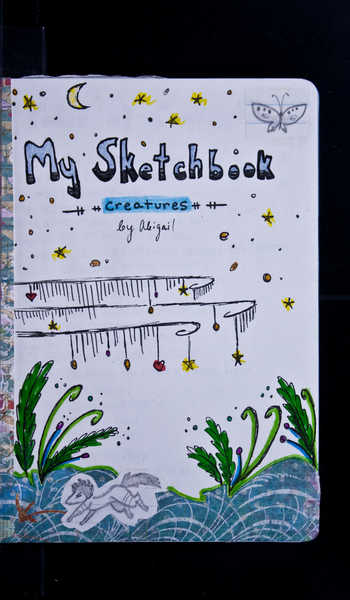 My Sketchbook
creatures
by Abigail